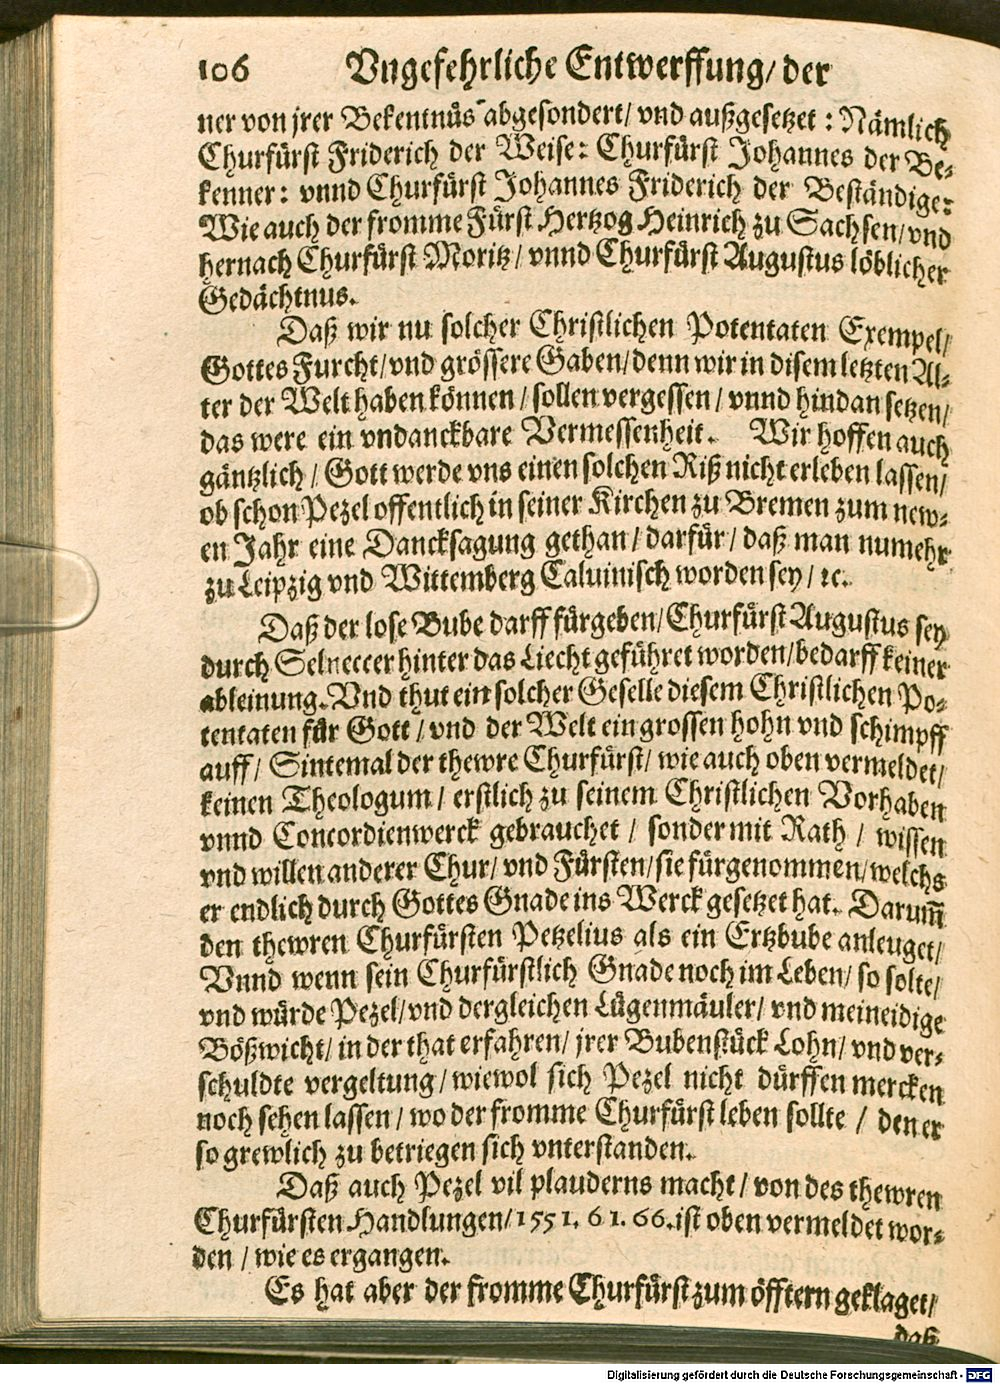 106 Vngefehrliche Entwerffung/ der
ner von jrer Bekentnüs abgesondert/ vnd außgesetzet : Nämlich
Churfürst Friderich der Weise: Churfürst Johannes der Be-
kenner: vnnd Churfürst Johannes Friderich der Beständige:
Wie auch der fromme Fürst Hertzog Heinrich zu Sachsen/ vnd
hernach Churfürst Moritz/ vnnd Churfürst Augustus löblicher
Gedächtnus.
Daß wir nu solcher Christlichen Potentaten Exempel/
Gottes Furcht/ vnd grössere Gaben/ denn wir in disem letzten Al-
ter der Welt haben können/ sollen vergessen/ vnnd hindan setzen/
das were ein vndanckbare Vermessenheit. Wir hoffen auch
gäntzlich/ Gott werde vns einen solchen Riß nicht erleben lassen/
ob schon Pezel offentlich in seiner Kirchen zu Bremen zum new-
en Jahr eine Dancksagung gethan/ darfür/ daß man numehr
zu Leipzig vnd Wittemberg Caluinisch worden sey/ ꝛc.
Daß der lose Bube darff fürgeben/ Churfürst Augustus sey
durch Selneccer hinter das Liecht geführet worden/ bedarff keiner
ableinung. Vnd thut ein solcher Geselle diesem Christlichen Po-
tentaten für Gott/ vnd der Welt ein grossen hohn vnd schimpff
auff/ Sintemal der thewre Churfürst/ wie auch oben vermeldet/
keinen Theologum/ erstlich zu seinem Christlichen Vorhaben
vnnd Concordienwerck gebrauchet/ sonder mit Rath/ wissen
vnd willen anderer Chur/ vnd Fürsten/ sie fürgenommen/ welchs
er endlich durch Gottes Gnade ins Werck gesetzet hat. Darum̃
den thewren Churfürsten Petzelius als ein Ertzbube anleuget/
Vnnd wenn sein Churfürstlich Gnade noch im Leben/ so solte/
vnd würde Pezel/ vnd dergleichen Lügenmäuler/ vnd meineidige
Bößwicht/ in der that erfahren/ jrer Bubenstück Lohn/ vnd ver-
schuldte vergeltung/ wiewol sich Pezel nicht dürffen mercken
noch sehen lassen/ wo der fromme Churfürst leben sollte/ den er
so grewlich zu betriegen sich vnterstanden.
Daß auch Pezel vil plauderns macht/ von des thewren
Churfürsten Handlungen/ 1551. 61. 66. ist oben vermeldet wor-
den/ wie es ergangen.
Es hat aber der fromme Churfürst zum öfftern geklaget/
daß
Digitalisierung gefördert durch die Deutsche Forschungsgemeinschaft - DFG